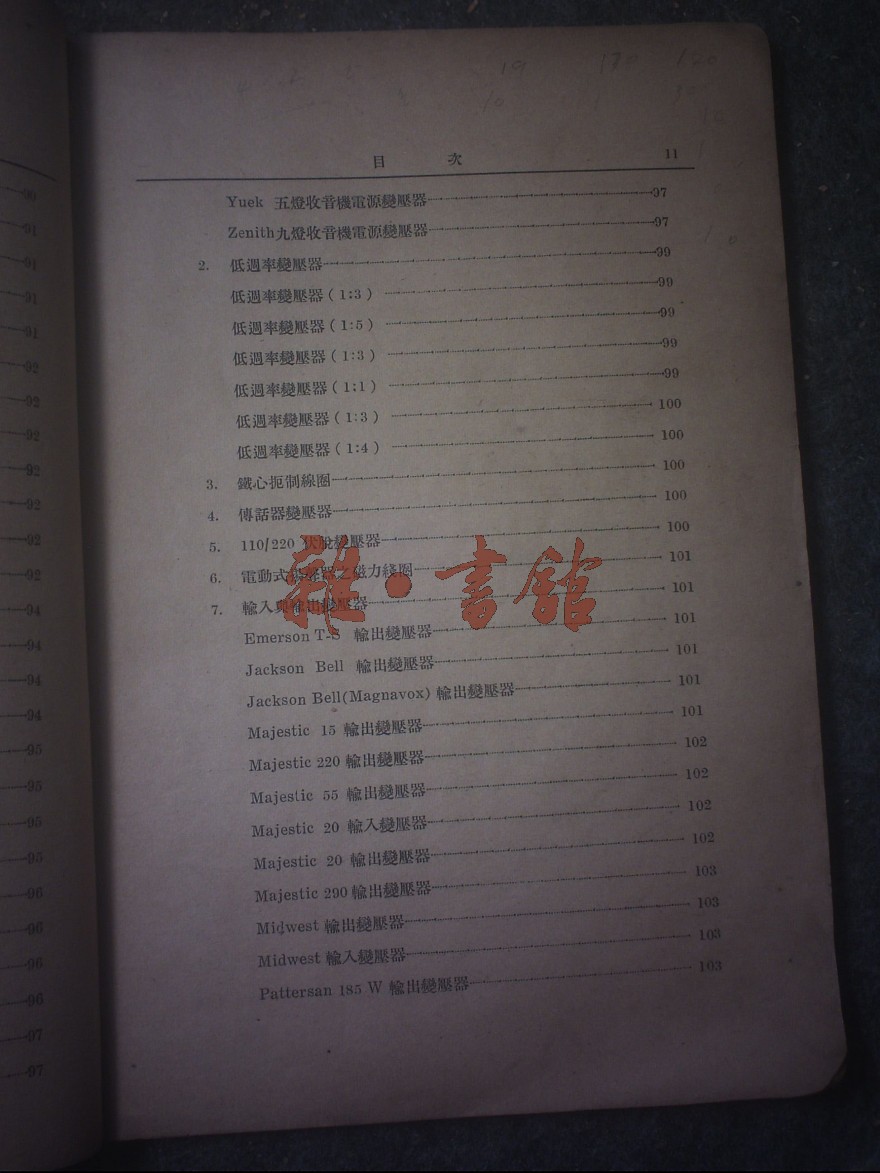 目 次 11
Yuek 五燈收音機電源變壓器 97
Zenith九燈收音機電源變壓器 97
2. 低週率變壓器 99
低週率變壓器(1:3) 99
低週率變壓器(1:5) 99
低週率變壓器(1:3) 99
低週率變壓器(1:1) 99
低週率變壓器(1:3) 100
低週率變壓器(1:4) 100
3. 鐵心扼制線圈 100
4. 傳話器變壓器 100
5. 110/220 伏脫變壓器 100
6. 電動式 器之磁力綫圈 101
7. 輸入與輸出變壓器 101
Emerson T-S 輸出變壓器 101
Jackson Bell 輸出變壓器 101
Jackson Bell(Magnavox) 輸出變壓器 101
Majestic 15 輸出變壓器 101
Majestic 220 輸出變壓器 102
Majestic 55 輸出變壓器 102
Majestic 20 輸入變壓器 102
Majestic 20 輸出變壓器 102
Majestic 290 輸出變壓器 103
Midwest 輸出變壓器 103
Midwest 輸入變壓器 103
Pattersan 185 W 輸出變壓器 103
雜·書館
90
91
91
91
91
92
92
92
92
92
92
92
94
94
94
94
95
95
95
95
96
96
96
96
97
97